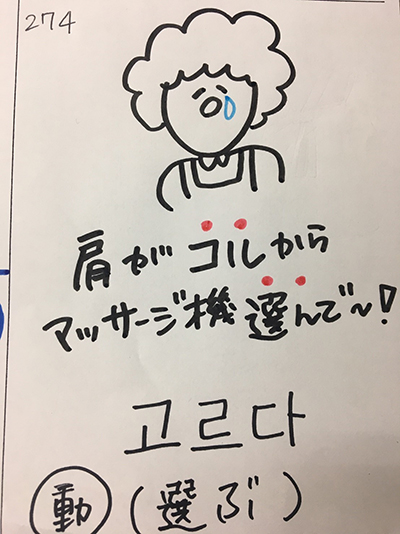 274
肩がコルから
マッサージ機選んで〜!
고르다
動 (選ぶ)